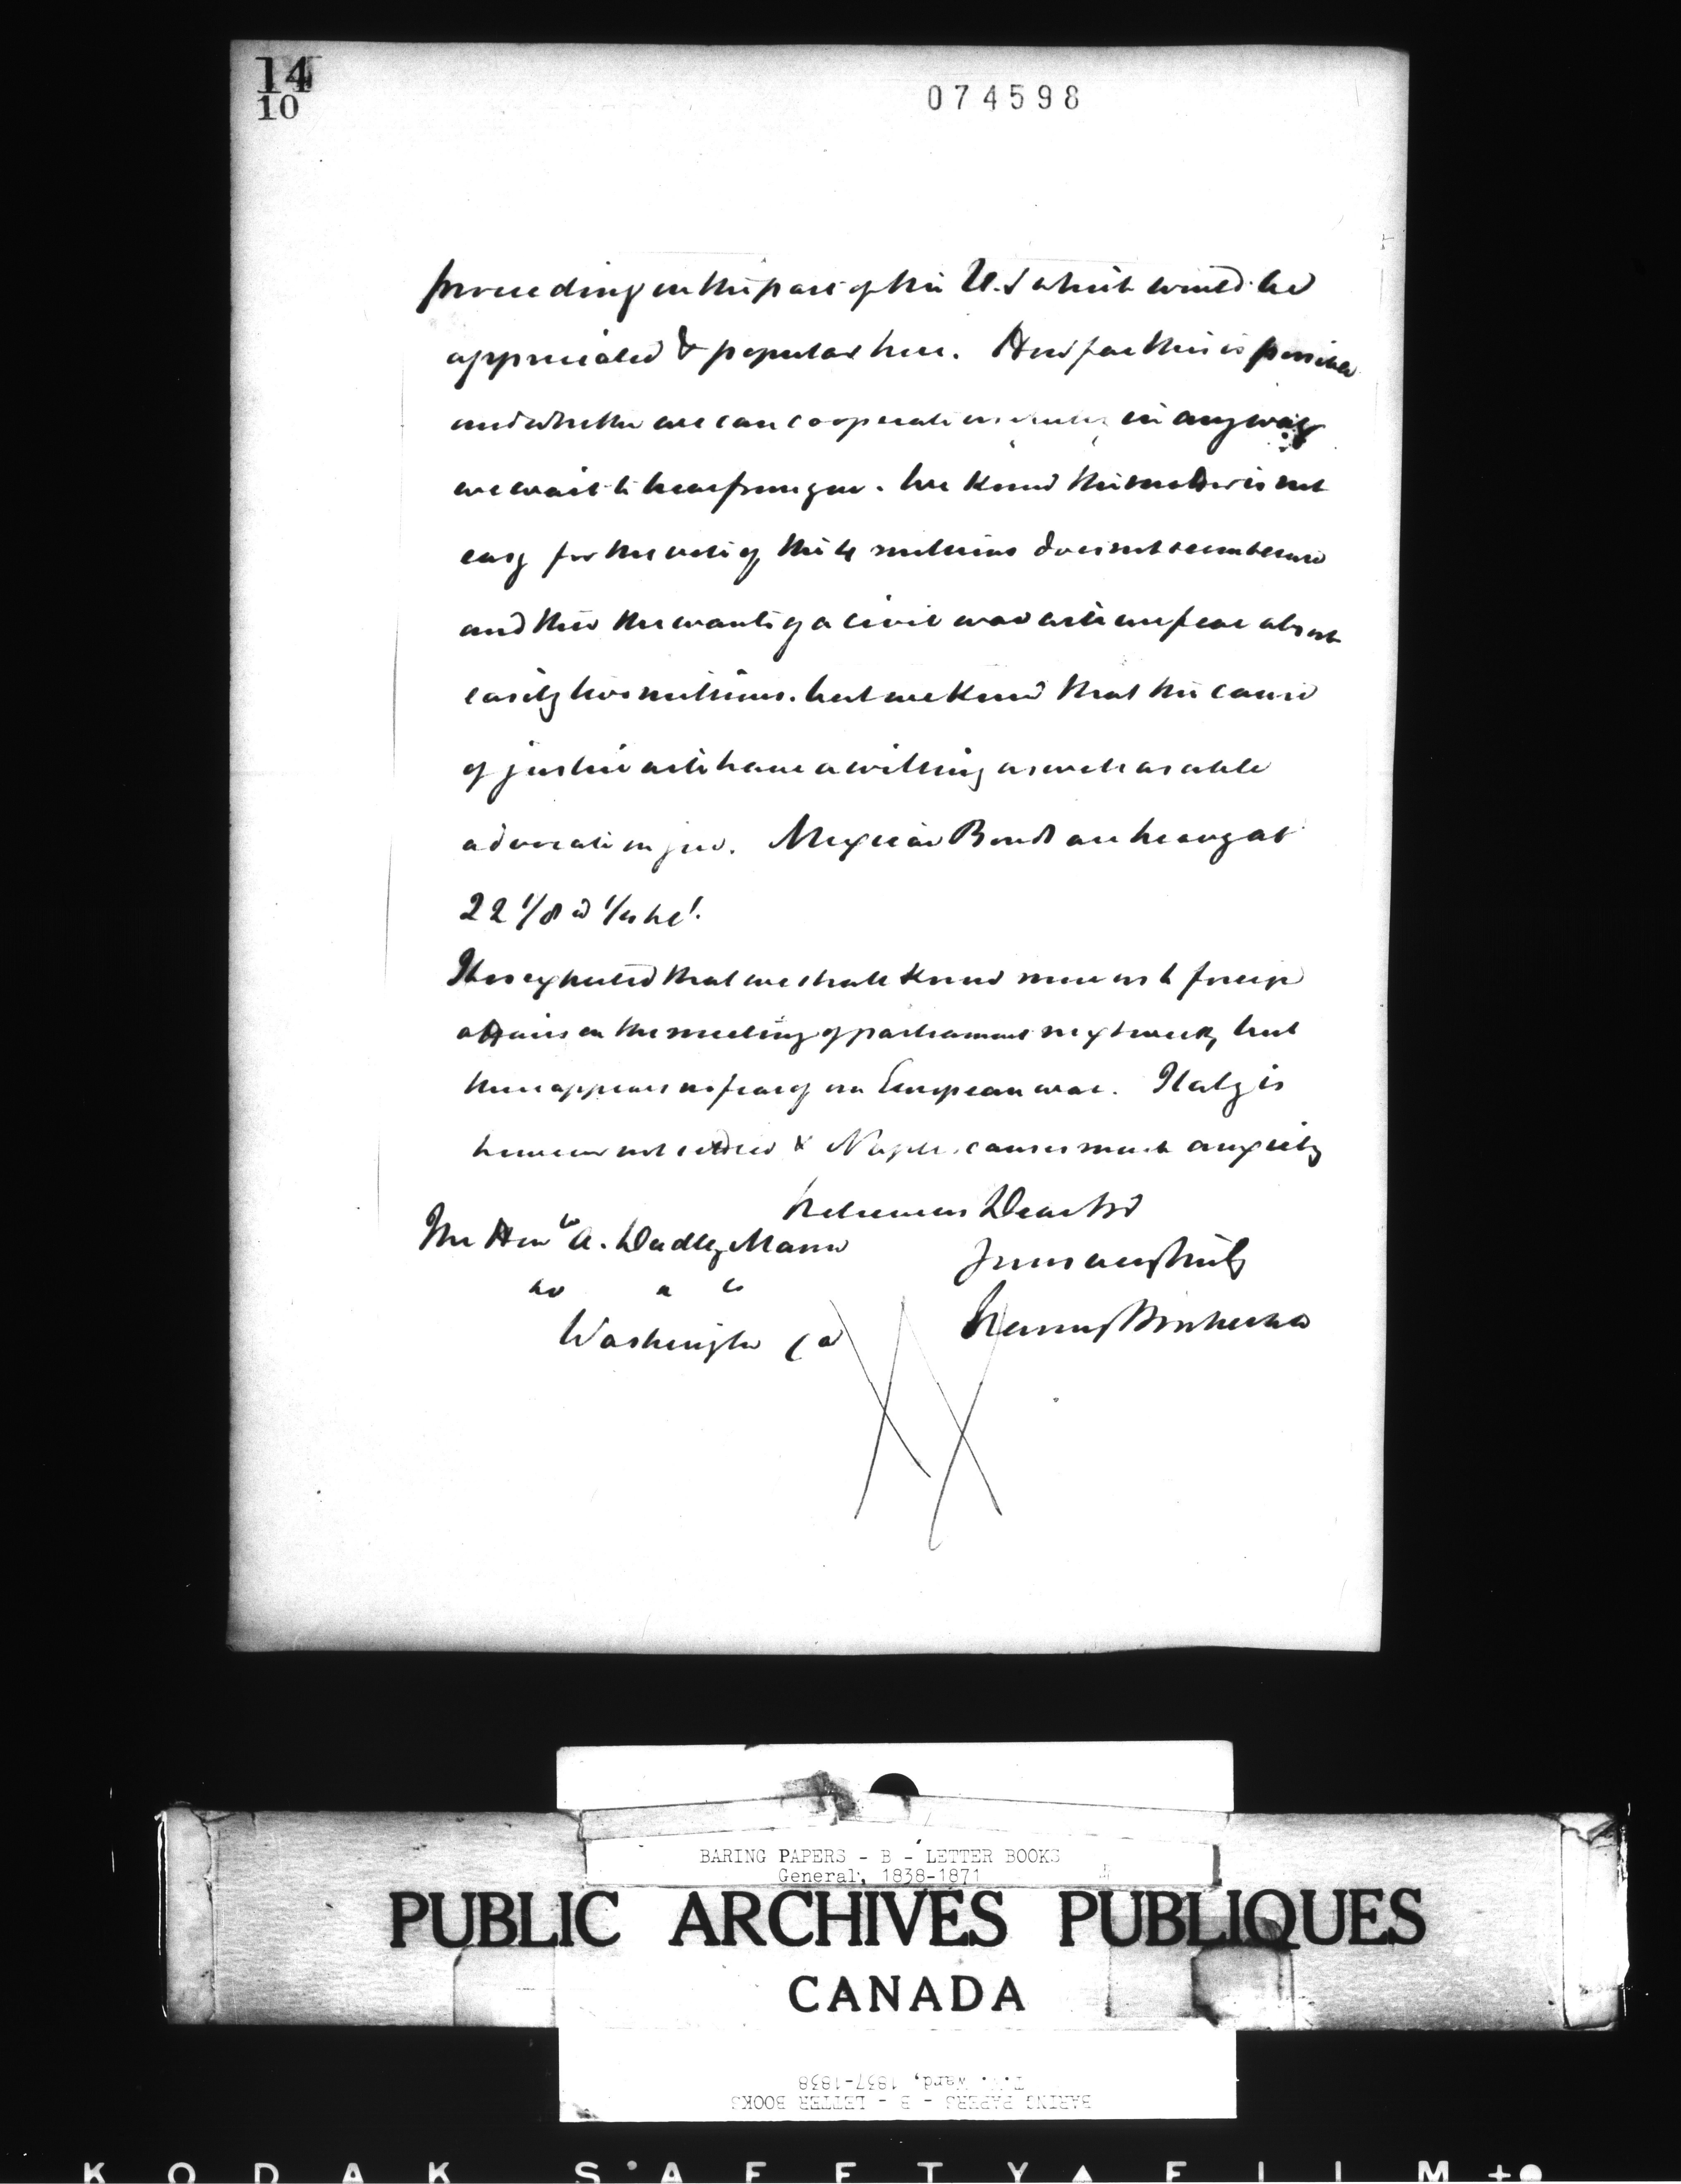 14
10
074598
proceeding on the part of the U.S which would be
appreciated & popular here. How far this is possible
and whether we can cooperate in any way
we wait to hear from you. We know the matter is not
easy for the vote of the 4 millions does not seem secure
and then the wants of a civil war will we fear absorb
easily two millions. but we know that the cause
of justice will have a willing as well as able
advocate in you. Mexican Bonds are heavy at
22 1/8 @ 1/4
It is expected that we shall know more as to foreign
affairs on the meeting of parliament next week, but
there appears no fear of an European war. Italy is
however not settled & Naples causes much anxiety
believe us Dear Sir
The Honble A. Dudley Mann
Yours very truly
&c &c &c
Washington
BARING PAPERS - B - LETTER BOOKS
General, 1838-1871
PUBLIC ARCHIVES PUBLIQUES
CANADA
T.W. Ward, 1837-1838
BARING PAPERS - B - LETTER BOOKS
KODAK SAFETY FILM